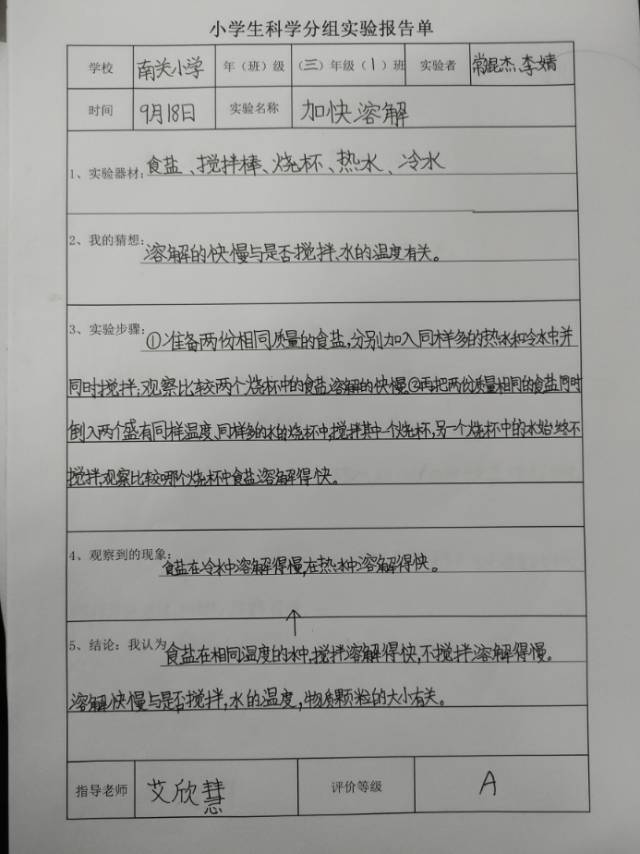 小学生科学分组实验报告单
学校 南关小学 年（班）级 （三）年级（1）班 实验者 常锟杰、李婧
时间 9月18日 实验名称 加快溶解
1、实验器材：食盐、搅拌棒、烧杯、热水、冷水
2、我的猜想：溶解的快慢与是否搅拌、水的温度有关。
3、实验步骤：①准备两份相同质量的食盐，分别加入同样多的热水和冷水中，并
同时搅拌，观察比较两个烧杯中的食盐溶解的快慢②再把两份质量相同的食盐同时
倒入两个盛有同样温度、同样多的水的烧杯中，搅拌其中一个烧杯，另一个烧杯中的水始终不
搅拌，观察比较哪个烧杯中食盐溶解得快。
4、观察到的现象：食盐在冷水中溶解得慢，在热水中溶解得快。
↑
5、结论：我认为食盐在相同温度的水中，搅拌溶解得快，不搅拌溶解得慢。
溶解快慢与是否搅拌，水的温度，物质颗粒的大小有关。
指导老师 艾欣慧 评价等级 A